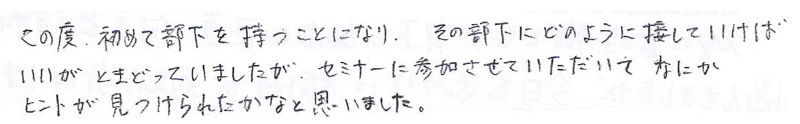 この度、初めて部下を持つことになり、その部下にどのように接していけば
いいがとまどっていましたが、セミナーに参加させていただいて なにか
ヒントが見つけられたかなと思いました。